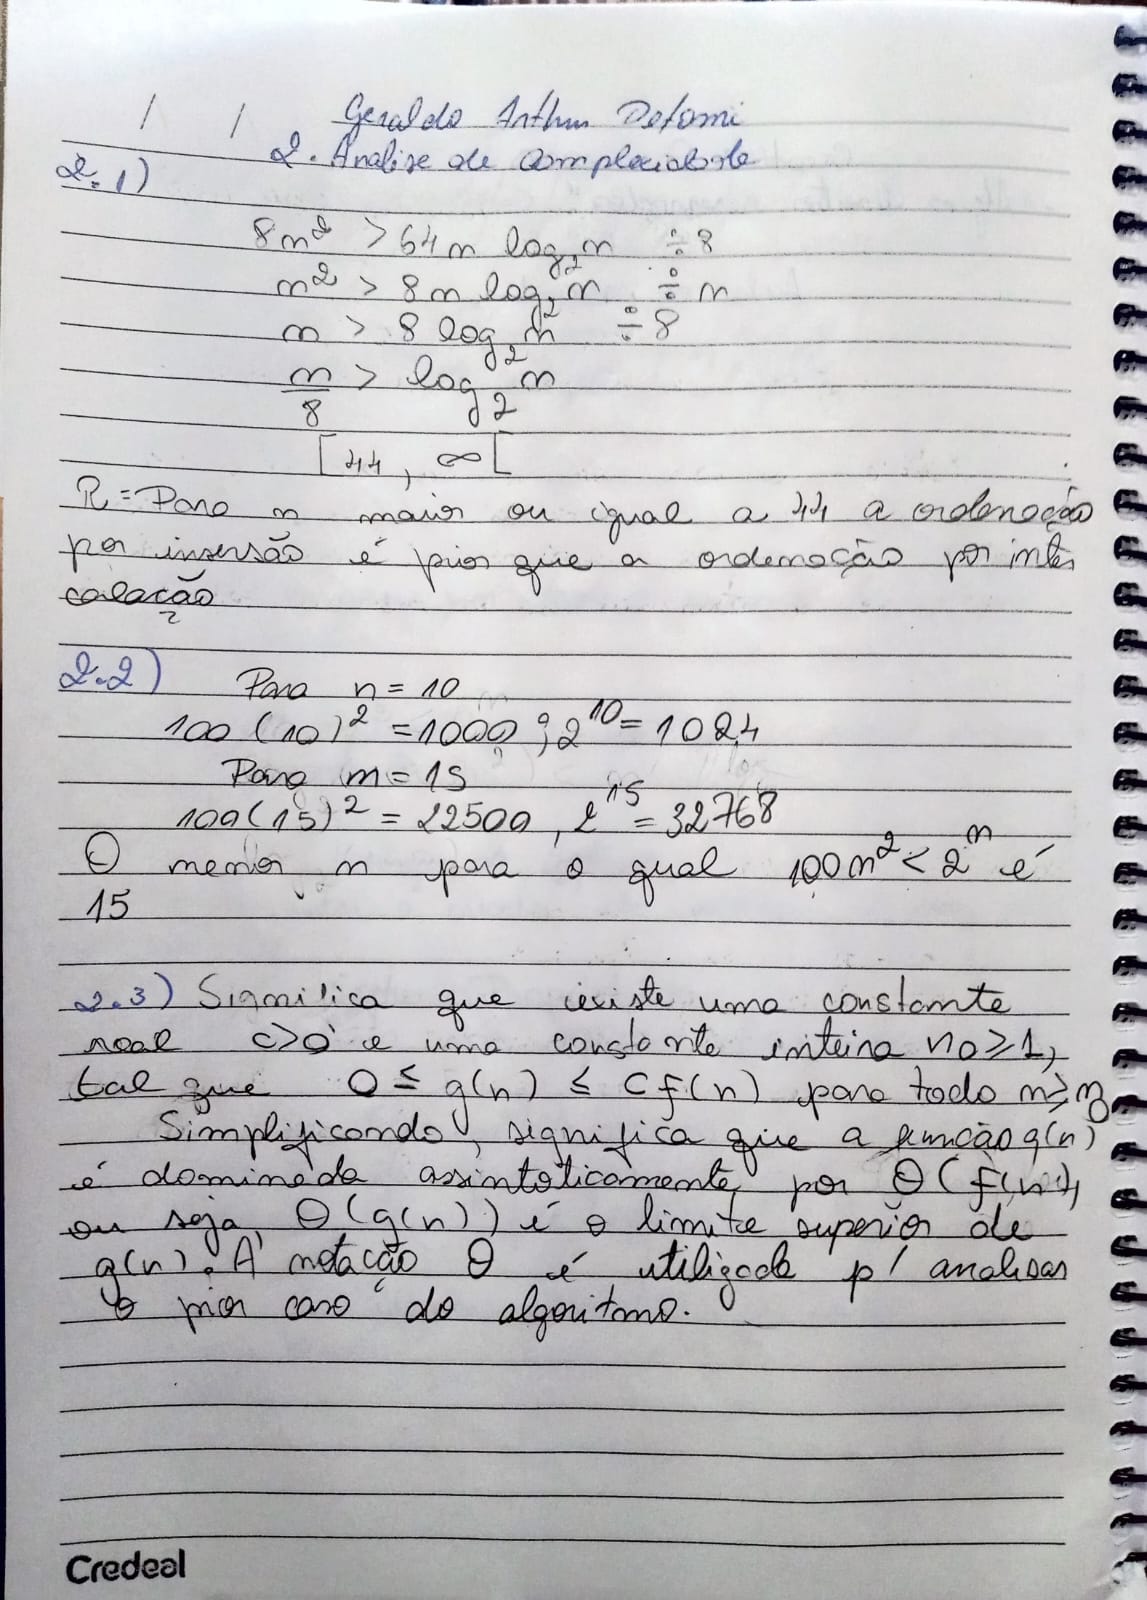 / / Geraldo Arthur Detomi
2. Analise de complexidade
2.1)
8n² > 64n log₂n ÷8
n² > 8n log₂n ÷ n
n > 8 log₂n ÷ 8
n/8 > log₂n
[44, ∞[
R = Para n maior ou igual a 44 a ordenação
por insersão é pior que a ordenação por inter
calação
2.2) Para n = 10
100(10)² = 1000; 2¹⁰ = 1024
Para n = 15
100(15)² = 22500, 2¹⁵ = 32768
O menor n para o qual 100n² < 2ⁿ é
15
2.3) Significa que existe uma constante
real c>0 e uma constante inteira n0≥1,
tal que 0 ≤ g(n) ≤ Cf(n) para todo n≥n0
Simplificando, significa que a função g(n)
é dominada assintoticamente por O(f(n)),
ou seja, O(g(n)) é o limite superior de
g(n). A notação O é utilizada p/ analisar
o pior caso do algoritmo.
Credeal